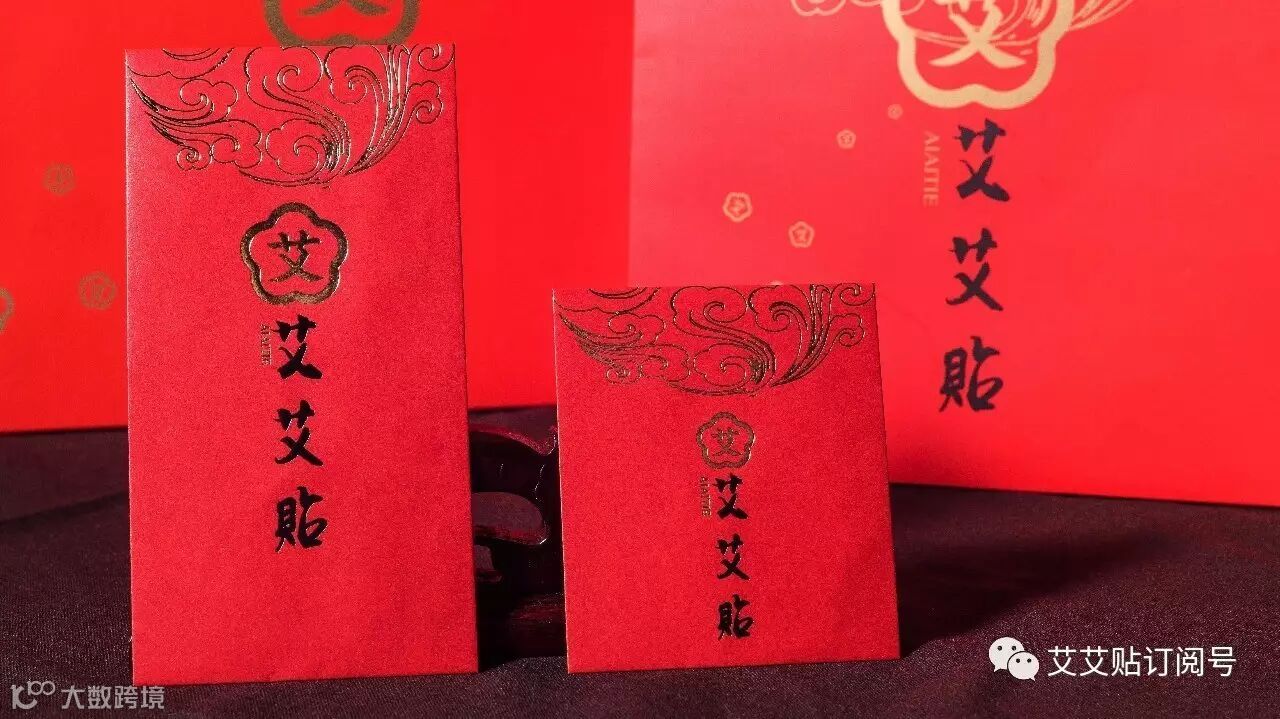 艾
艾
AIAITIE
艾艾貼
艾
AIAITIE
艾艾貼
艾
AIAITIE
艾艾貼
艾艾贴订阅号
大数跨境